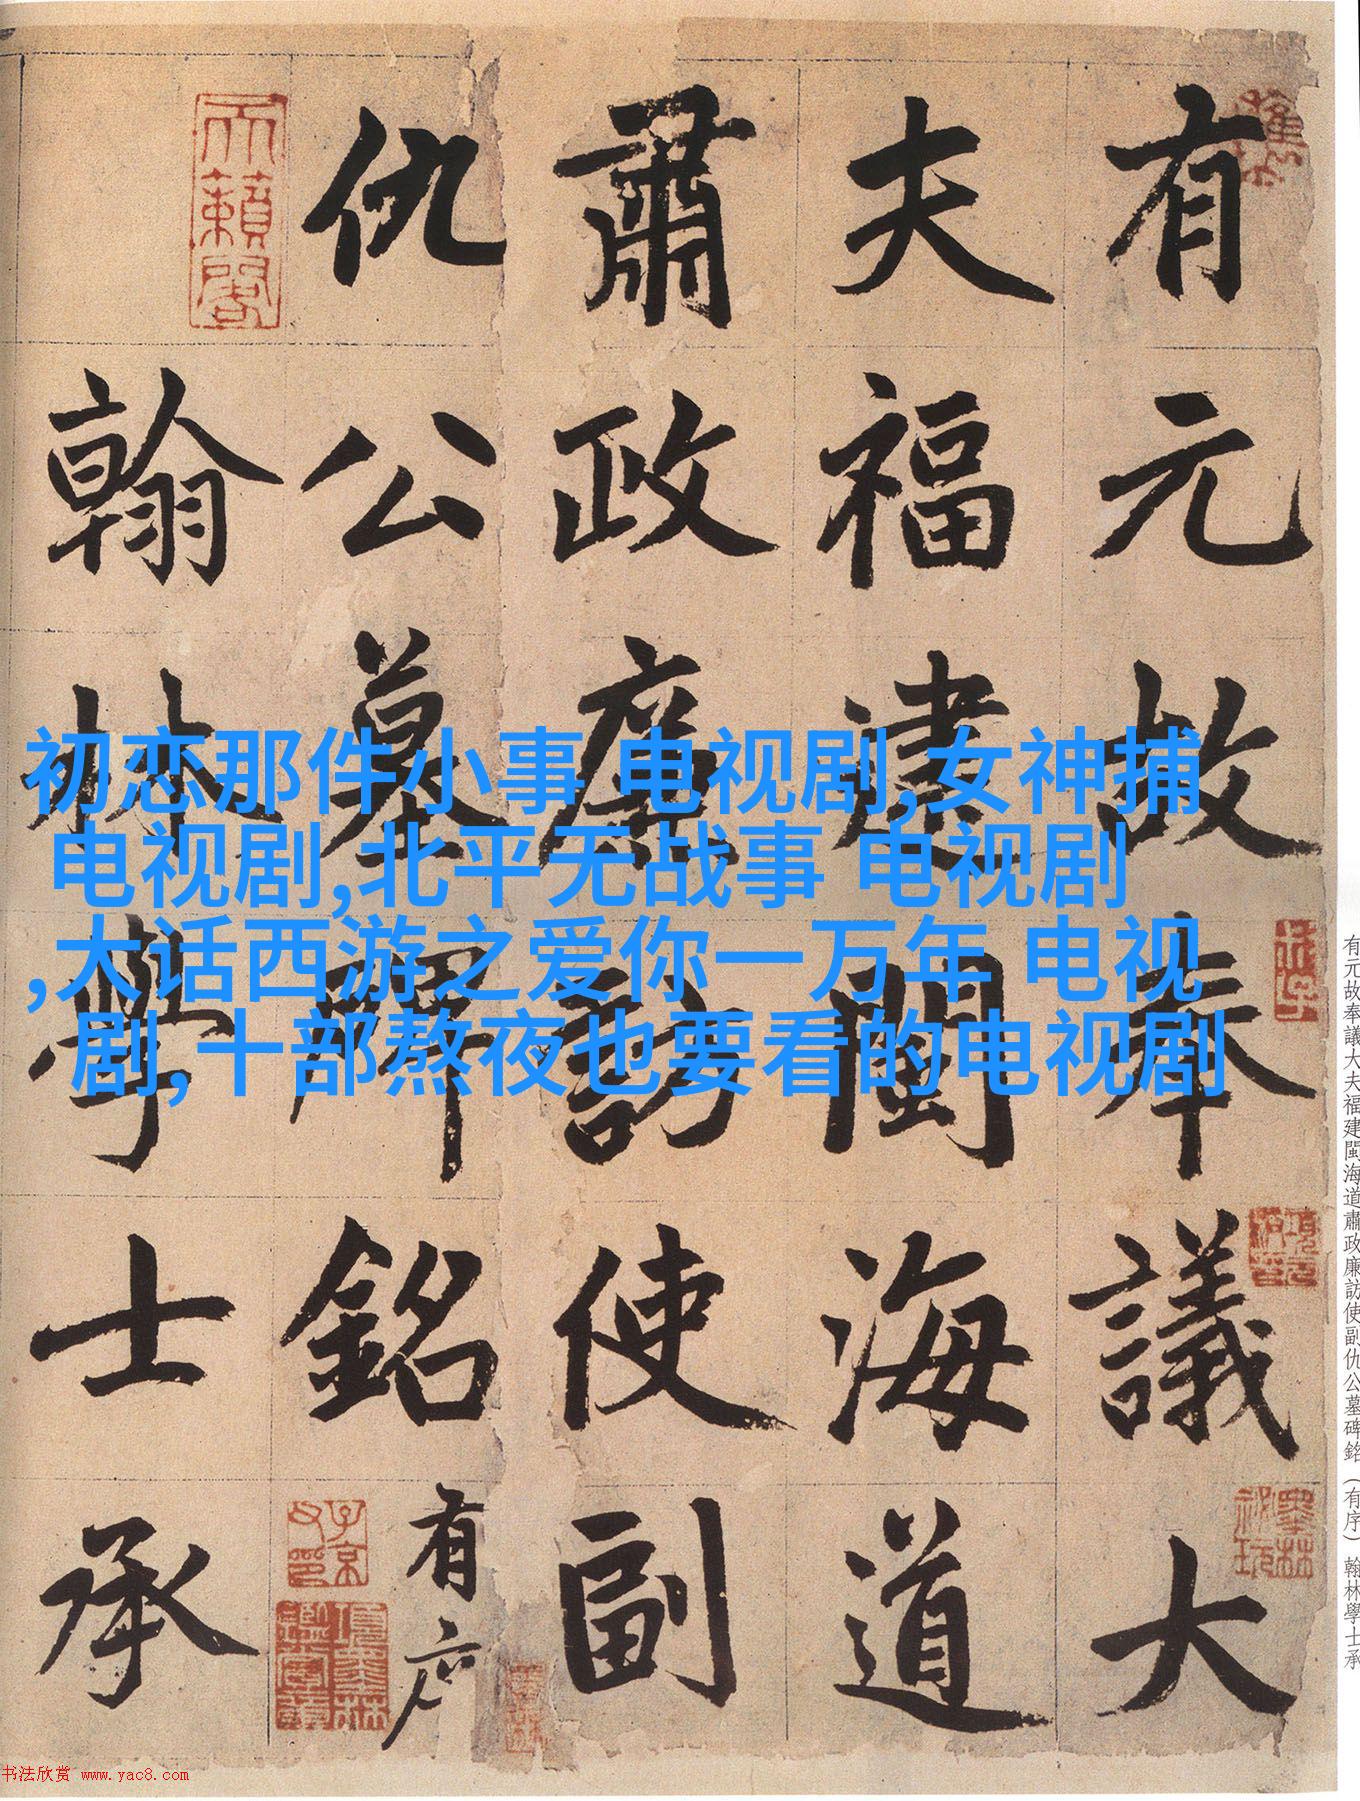 有元故奉議大
夫福建閩海道
肅政廉訪使副
仇公墓碑銘有序
翰林學士承
初恋那件小事 电视剧,女神捕
电视剧,北平无战事 电视剧
,大话西游之爱你一万年 电视
剧,十部熬夜也要看的电视剧
有元故奉議大夫福建閩海道肅政廉訪使副仇公墓碑銘（有序）翰林學士承
天籟閣
子京父印
书法欣赏 www.yac8.com